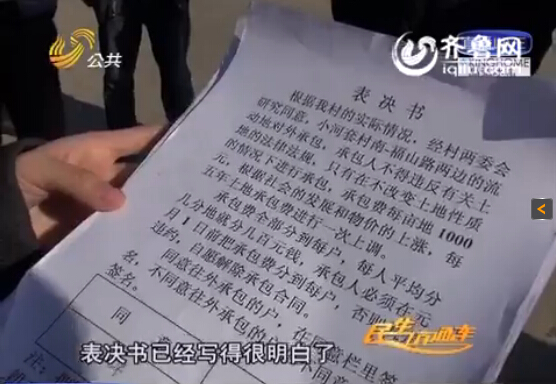 公共
齐鲁网
iqilu.com
KINGHOME
表决书
根据我村的实际情况，经村两委会
研究同意，小河套村南-福山路两边的流
动地对外承包，承包人不得违反有关土
地的法律法规，只有在不改变土地性质
的情况下进行承包，承包费每亩地1000
元，根据社会的发展和物价的上涨，每
五年土地承包费进行一次上调。
承包费全部分到每户，每人平均分
几分地就分几百元钱，承包人必须在元
月1日前把承包费分到每户，否则
违约，自愿解除承包合同。
同意往外承包的户，在同意栏里签
名，不同意往外承包的
签名。
同
注：
民生直通车
表决书已经写得很明白了